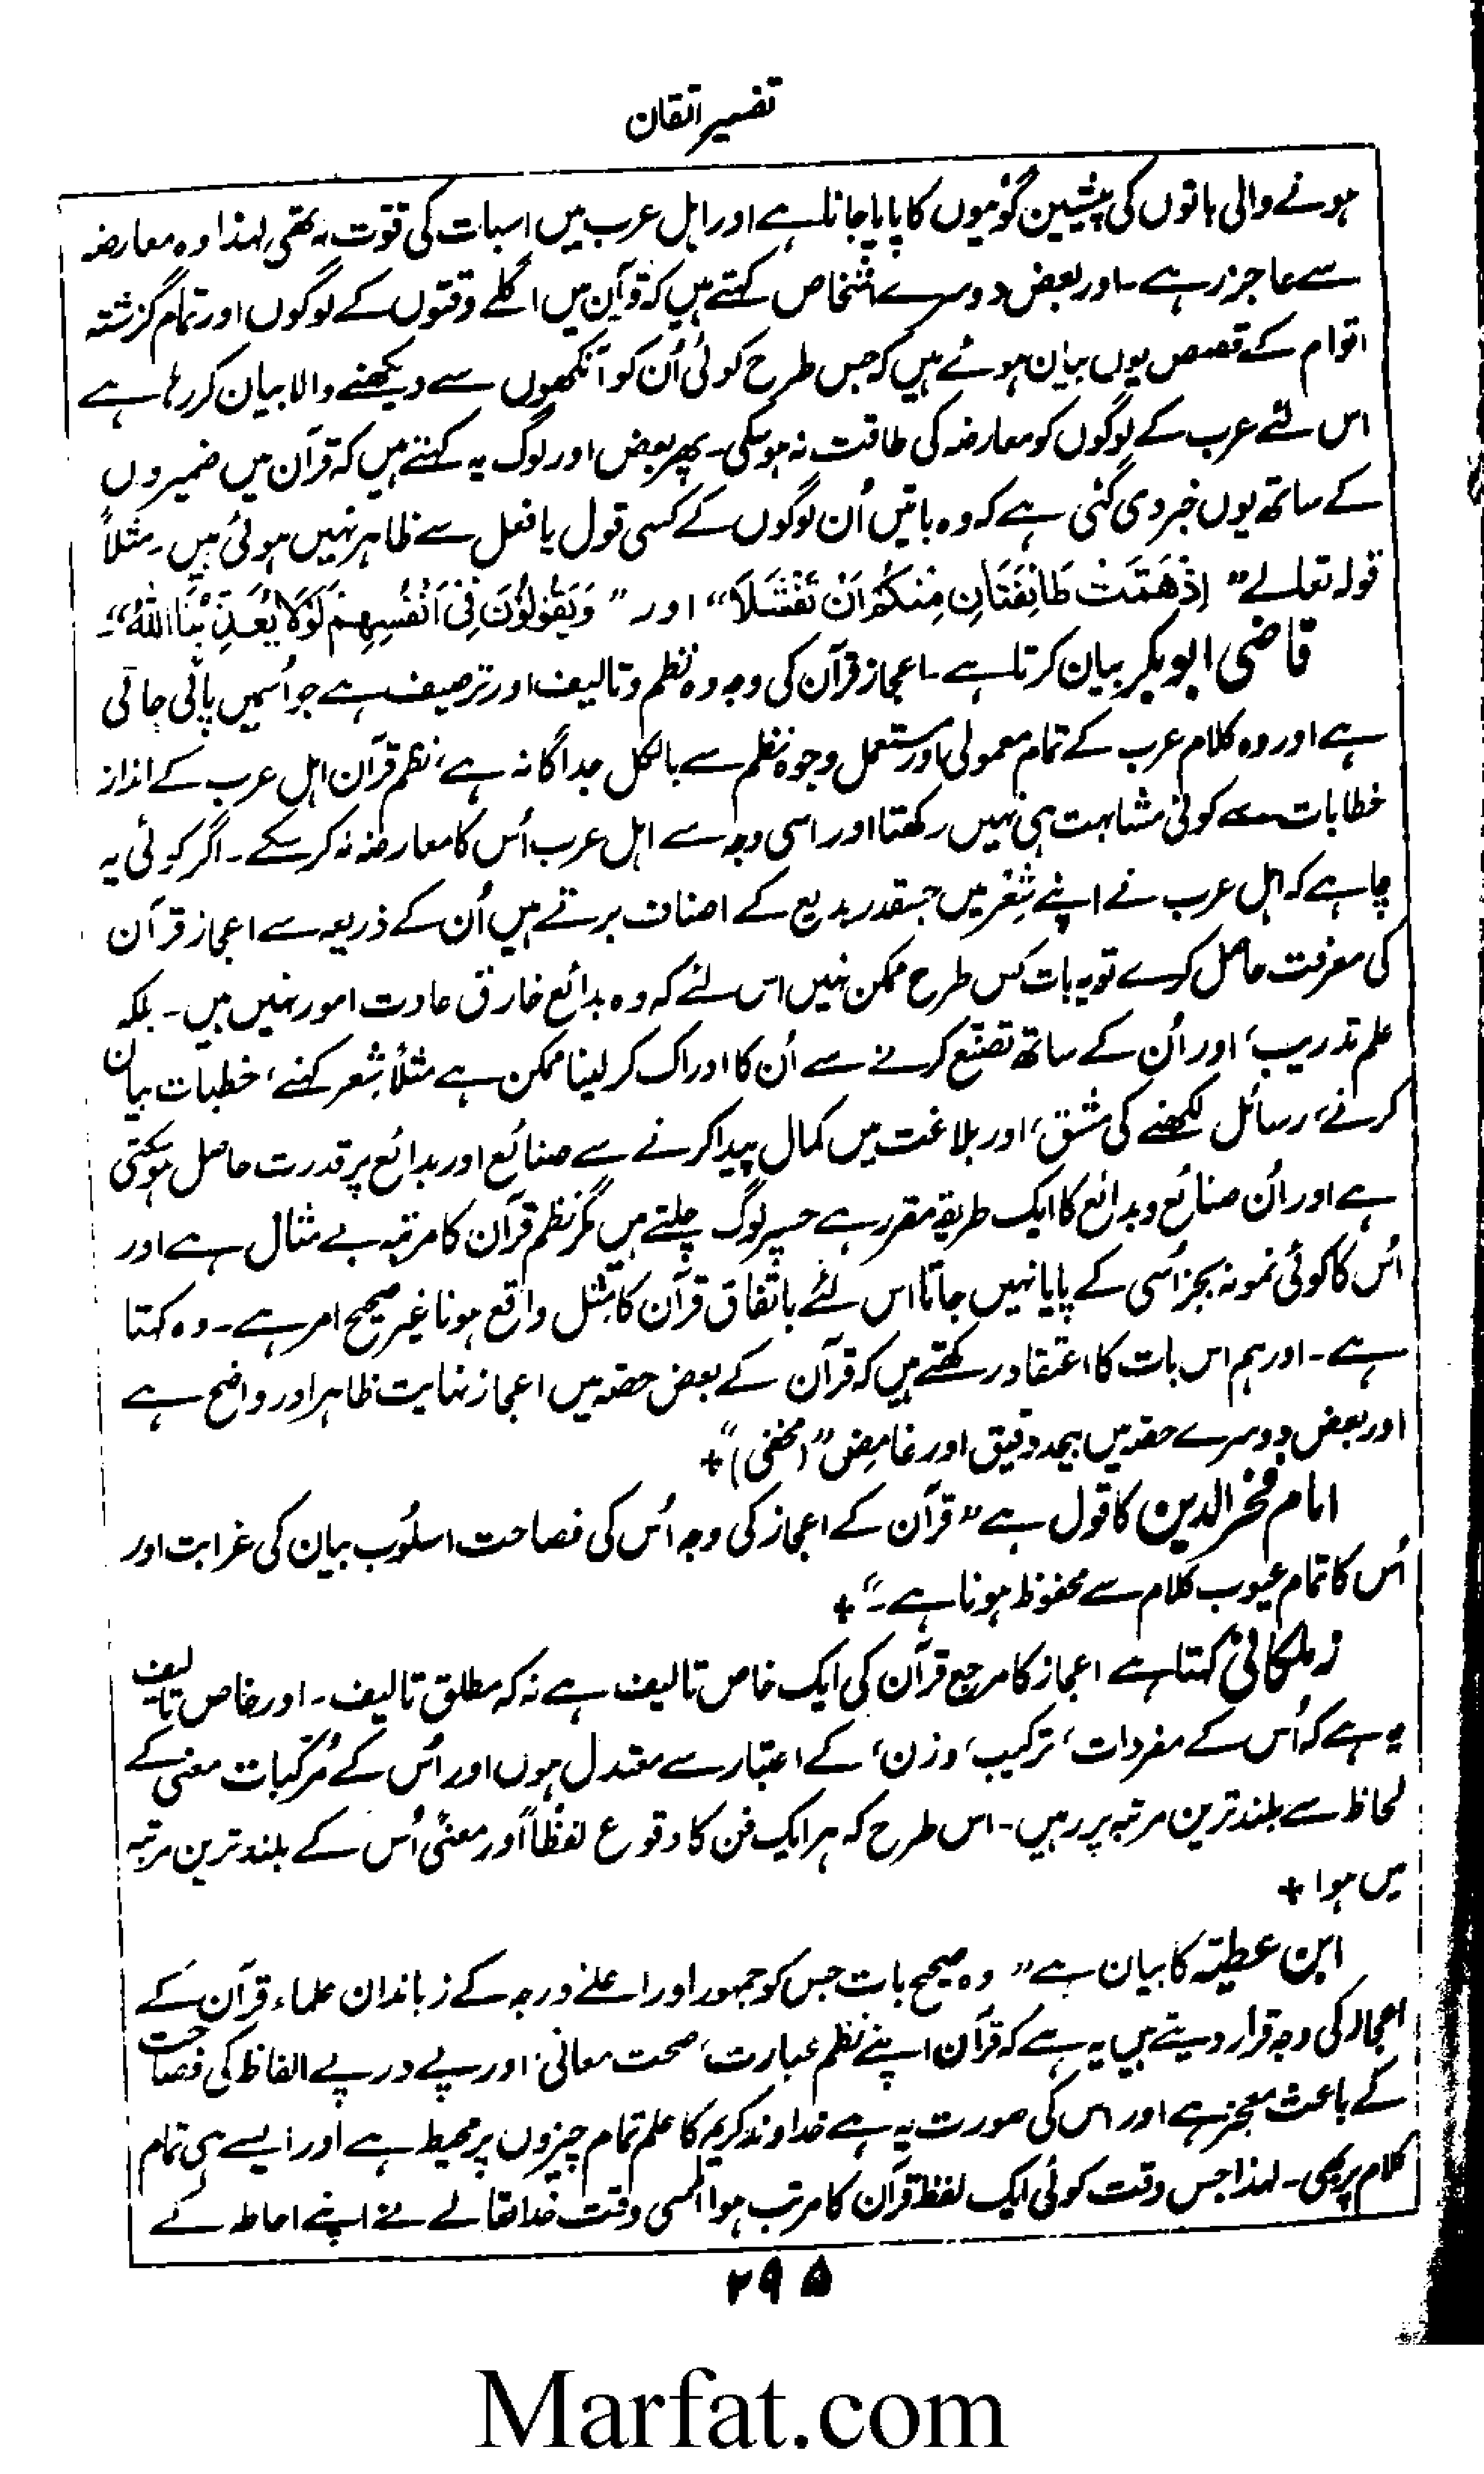 تفسیر اتقان
ہونے والی باتوں کی پیشین گوئیوں کا پایا جانا ہے اور اہل عرب میں اسبات کی قوت نہ تھی لہذا وہ معارضہ
سے عاجز رہے۔ اور بعض دوسرے اشخاص کہتے ہیں کہ قرآن میں اگلے وقتوں کے لوگوں اور تمام گزشتہ
اقوام کے قصص یوں بیان ہوئے ہیں کہ جس طرح کوئی اُن کو آنکھوں سے دیکھنے والا بیان کر رہا ہے
اس لئے عرب کے لوگوں کو معارضہ کی طاقت نہ ہوسکی۔ پھر بعض اور لوگ یہ کہتے ہیں کہ قرآن میں ضمیروں
کے ساتھ یوں خبر دی گئی ہے کہ وہ باتیں اُن لوگوں کے کسی قول یا فعل سے ظاہر نہیں ہوئی ہیں۔ مثلاً
قولہ تعالے ”اِذْ هَمَّتْ طَائِفَتَانِ مِنْكُمْ اَنْ تَفْشَلَا“ اور ”وَيَقُوْلُوْنَ فِیْ اَنْفُسِهِمْ لَوْلَا يُعَذِّبُنَا اللّٰهُ“۔
قاضی ابو بکر بیان کرتا ہے۔ اعجاز قرآن کی وجہ وہ نظم و تالیف اور ترصیف ہے جو اُسمیں پائی جاتی
ہے اور وہ کلام عرب کے تمام معمولی اور مستعمل وجوہ نظم سے بالکل جداگانہ ہے، نظم قرآن اہل عرب کے انداز
خطابات سے کوئی مشابہت ہی نہیں رکھتا اور اسی وجہ سے اہل عرب اُس کا معارضہ نہ کرسکے۔ اگر کوئی یہ
چاہے کہ اہل عرب نے اپنے شِعْر میں جسقدر بدیع کے اصناف برتے ہیں اُن کے ذریعہ سے اعجاز قرآن
کی معرفت حاصل کرے تو یہ بات کس طرح ممکن نہیں اس لئے کہ وہ بدائع خارق عادت امور نہیں ہیں۔ بلکہ
علم تدریب، اور اُن کے ساتھ تصنّع کرنے سے اُن کا ادراک کر لینا ممکن ہے مثلاً شِعر کہنے، خطبات بیان
کرنے، رسائل لکھنے کی مشق، اور بلاغت میں کمال پیدا کرنے سے صنائع اور بدائع پر قدرت حاصل ہوسکتی
ہے اور اُن صنائع و بدائع کا ایک طریقہ مقرر ہے جسپر لوگ چلتے ہیں مگر نظم قرآن کا مرتبہ بے مثال ہے اور
اُس کا کوئی نمونہ بجز اُسی کے پایا نہیں جاتا اس لئے باتفاق قرآن کا مِثل واقع ہونا غیر صحیح امر ہے۔ وہ کہتا
ہے۔ اور ہم اس بات کا اعتقاد رکھتے ہیں کہ قرآن کے بعض حصّہ میں اعجاز نہایت ظاہر اور واضح ہے
اور بعض دوسرے حصّہ میں بیحد دقیق اور غامِض ”(مخفی)“ +
امام فخر الدین کا قول ہے ”قرآن کے اعجاز کی وجہ اُس کی فصاحت اسلُوب بیان کی غرابت اور
اُس کا تمام عیوب کلام سے محفوظ ہونا ہے۔“ +
زملکانی کہتا ہے اعجاز کا مرجع قرآن کی ایک خاص تالیف ہے نہ کہ مطلق تالیف۔ اور خاص تالیف
یہ ہے کہ اُس کے مفردات، ترکیب، وزن، کے اعتبار سے معتدل ہوں اور اُس کے مُرکّبات معنی کے
لحاظ سے بلند ترین مرتبہ پر رہیں۔ اس طرح کہ ہر ایک فن کا وقوع لفظاً اور معنًی اُس کے بلند ترین مرتبہ
میں ہوا +
ابن عطیّہ کا بیان ہے ”وہ صحیح بات جس کو جمہور اور اعلےٰ درجہ کے زباندان علماء قرآن کے
اعجاز کی وجہ قرار دیتے ہیں یہ ہے کہ قرآن اپنے نظم عبارت، صحت معانی، اور پے در پے الفاظ کی فصاحت
کے باعث معجز ہے اور اس کی صورت یہ ہے خداوند کریم کا علم تمام چیزوں پر محیط ہے اور ایسے ہی تمام
کلام پر بھی۔ لہذا جس وقت کوئی ایک لفظ قرآن کا مرتب ہوا اُسی وقت خدا تعالے نے اپنے احاطہ کے
۲۹۵
Marfat.com